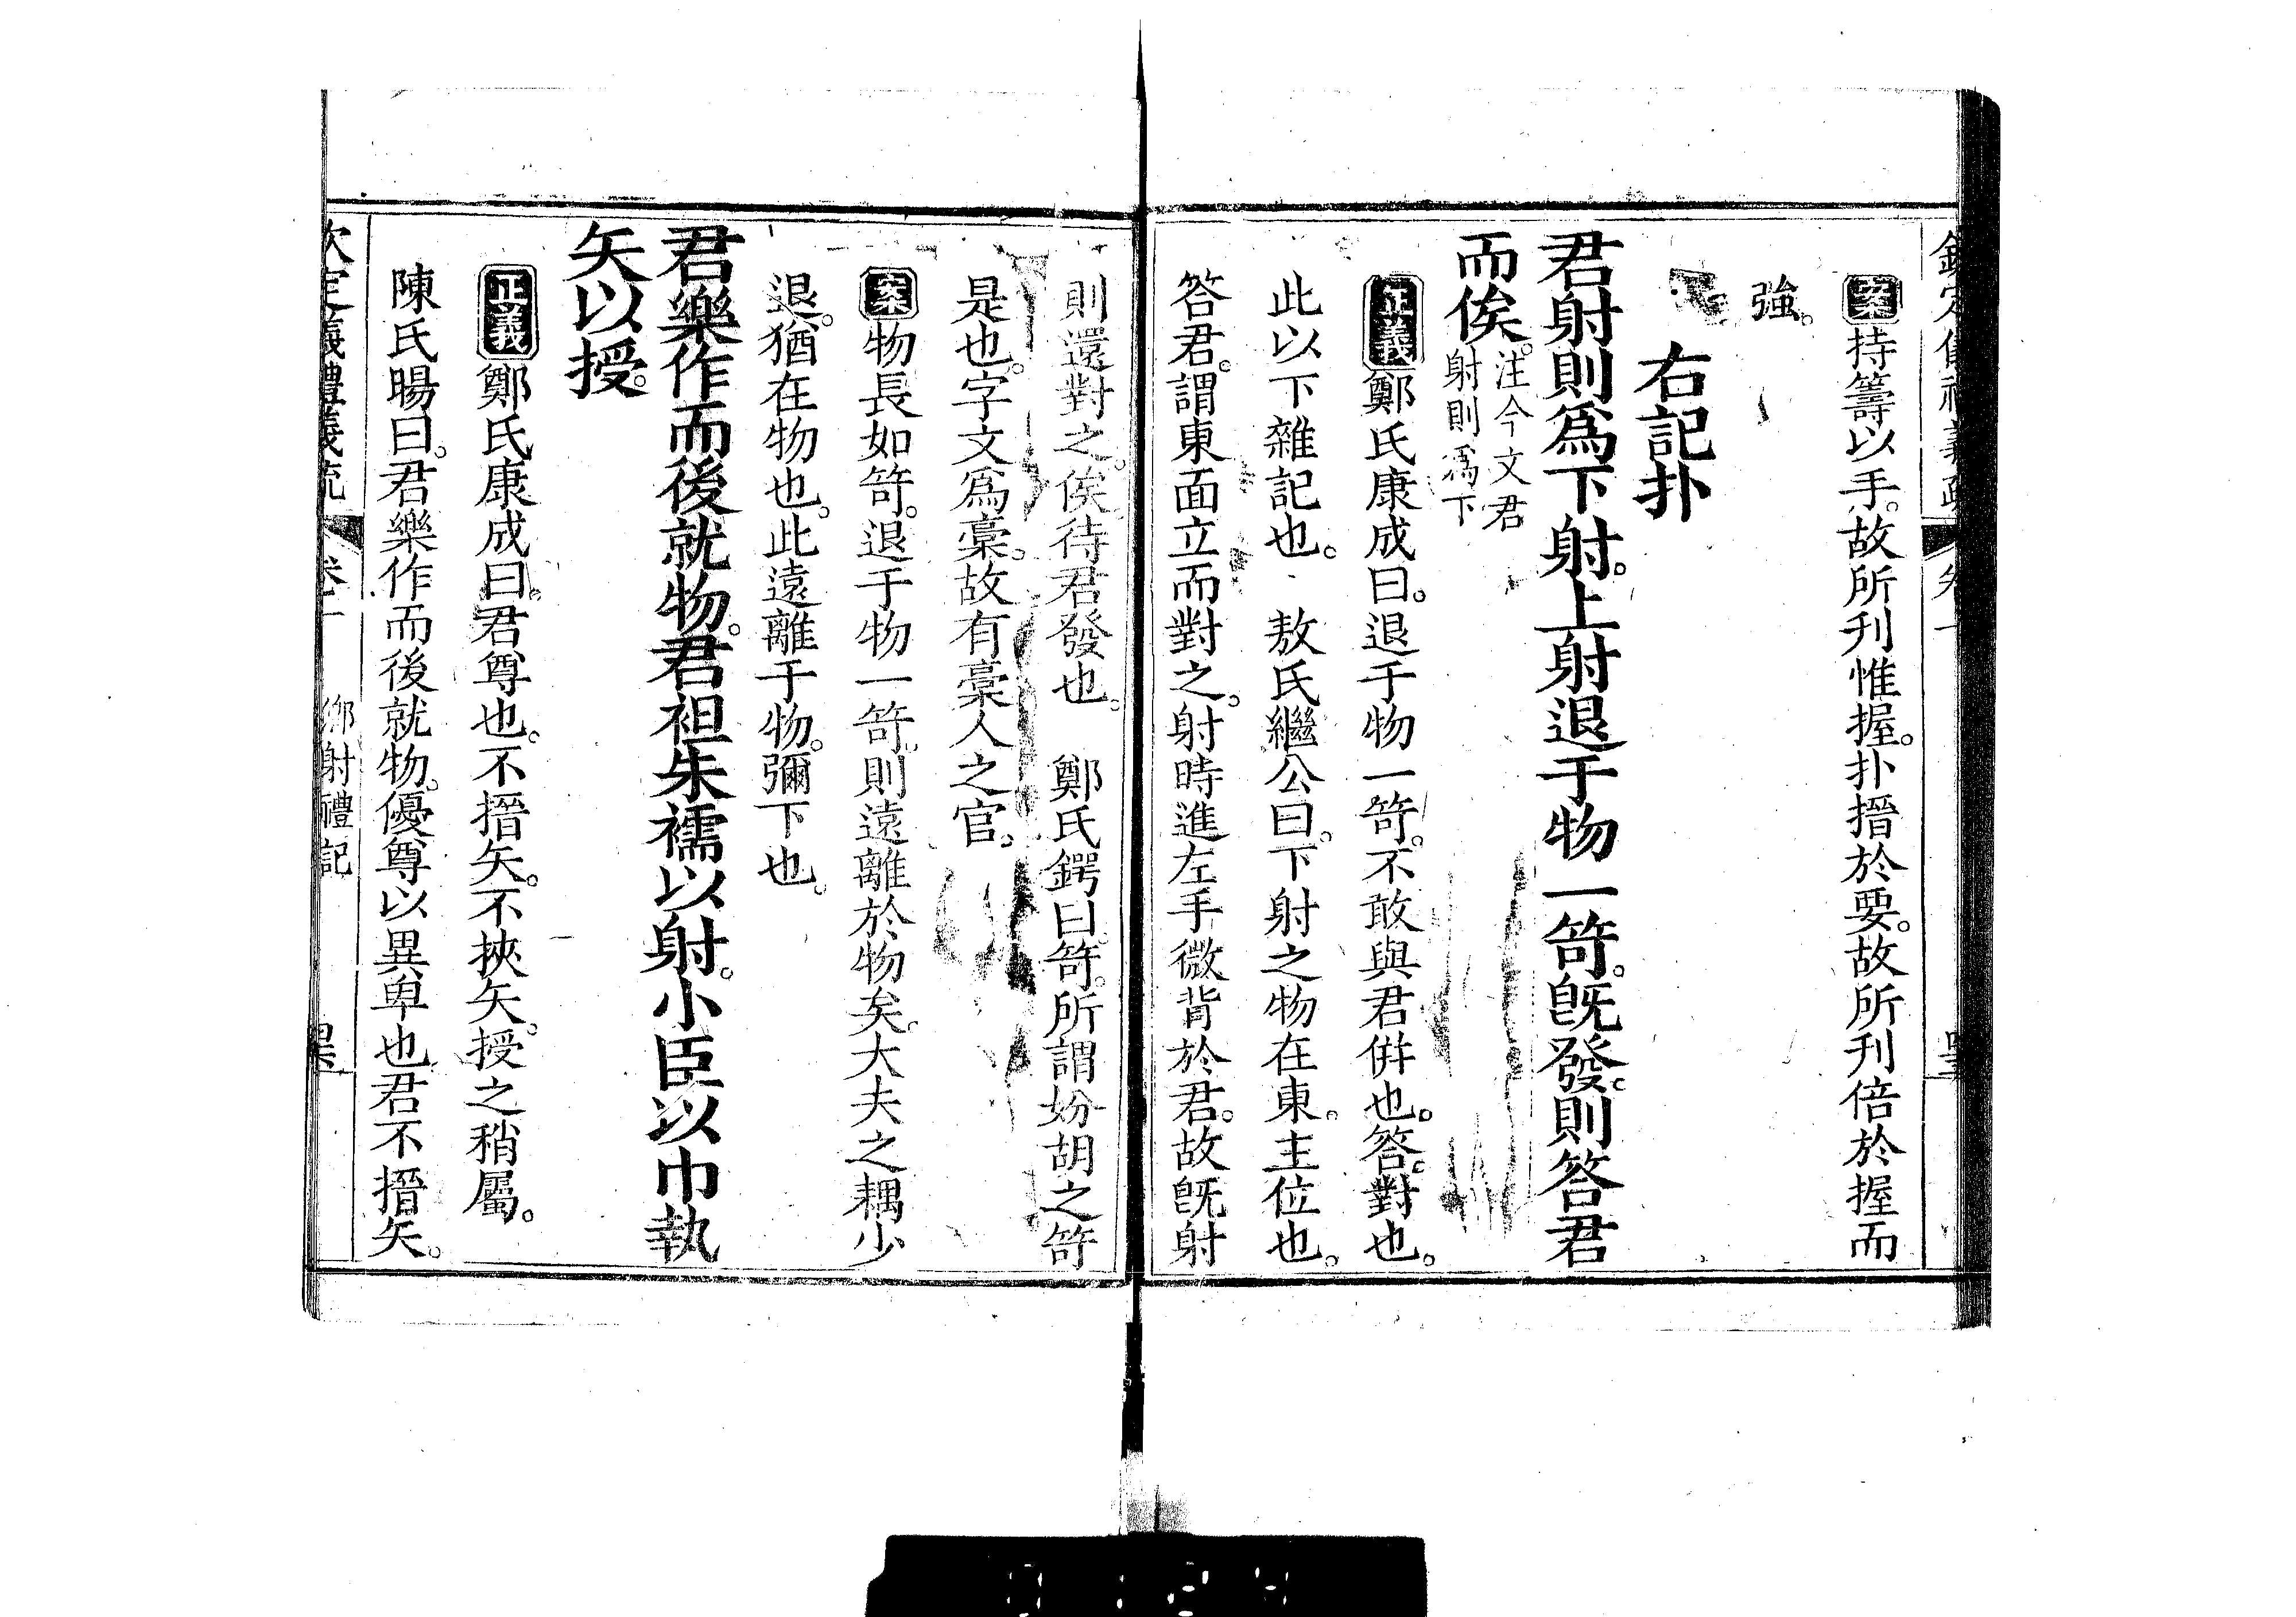 案持籌以手。故所刋惟握。扑搢於要。故所刋倍於握而
強。
右記扑
君射則爲下射。上射退于物一笴。旣發。則答君
而俟。注今文君射則爲下
正義鄭氏康成曰。退于物一笴。不敢與君併也。答。對也。
此以下雜記也。 敖氏繼公曰。下射之物在東。主位也。
答君。謂東面立而對之。射時進左手微背於君。故旣射
則還對之。俟待君發也。 鄭氏鍔曰。笴。所謂妢胡之笴
是也。字文爲稾。故有稾人之官。
案物長如笴。退于物一笴。則遠離於物矣。大夫之耦少
退。猶在物也。此遠離于物。彌下也。
君樂作而後就物。君袒朱襦以射。小臣以巾執
矢以授。
正義鄭氏康成曰。君尊也。不搢矢。不挾矢。授之稍屬。
陳氏暘曰。君樂作而後就物。優尊以異卑也君不搢矢。
欽定儀禮義疏 卷十 鄉射禮記